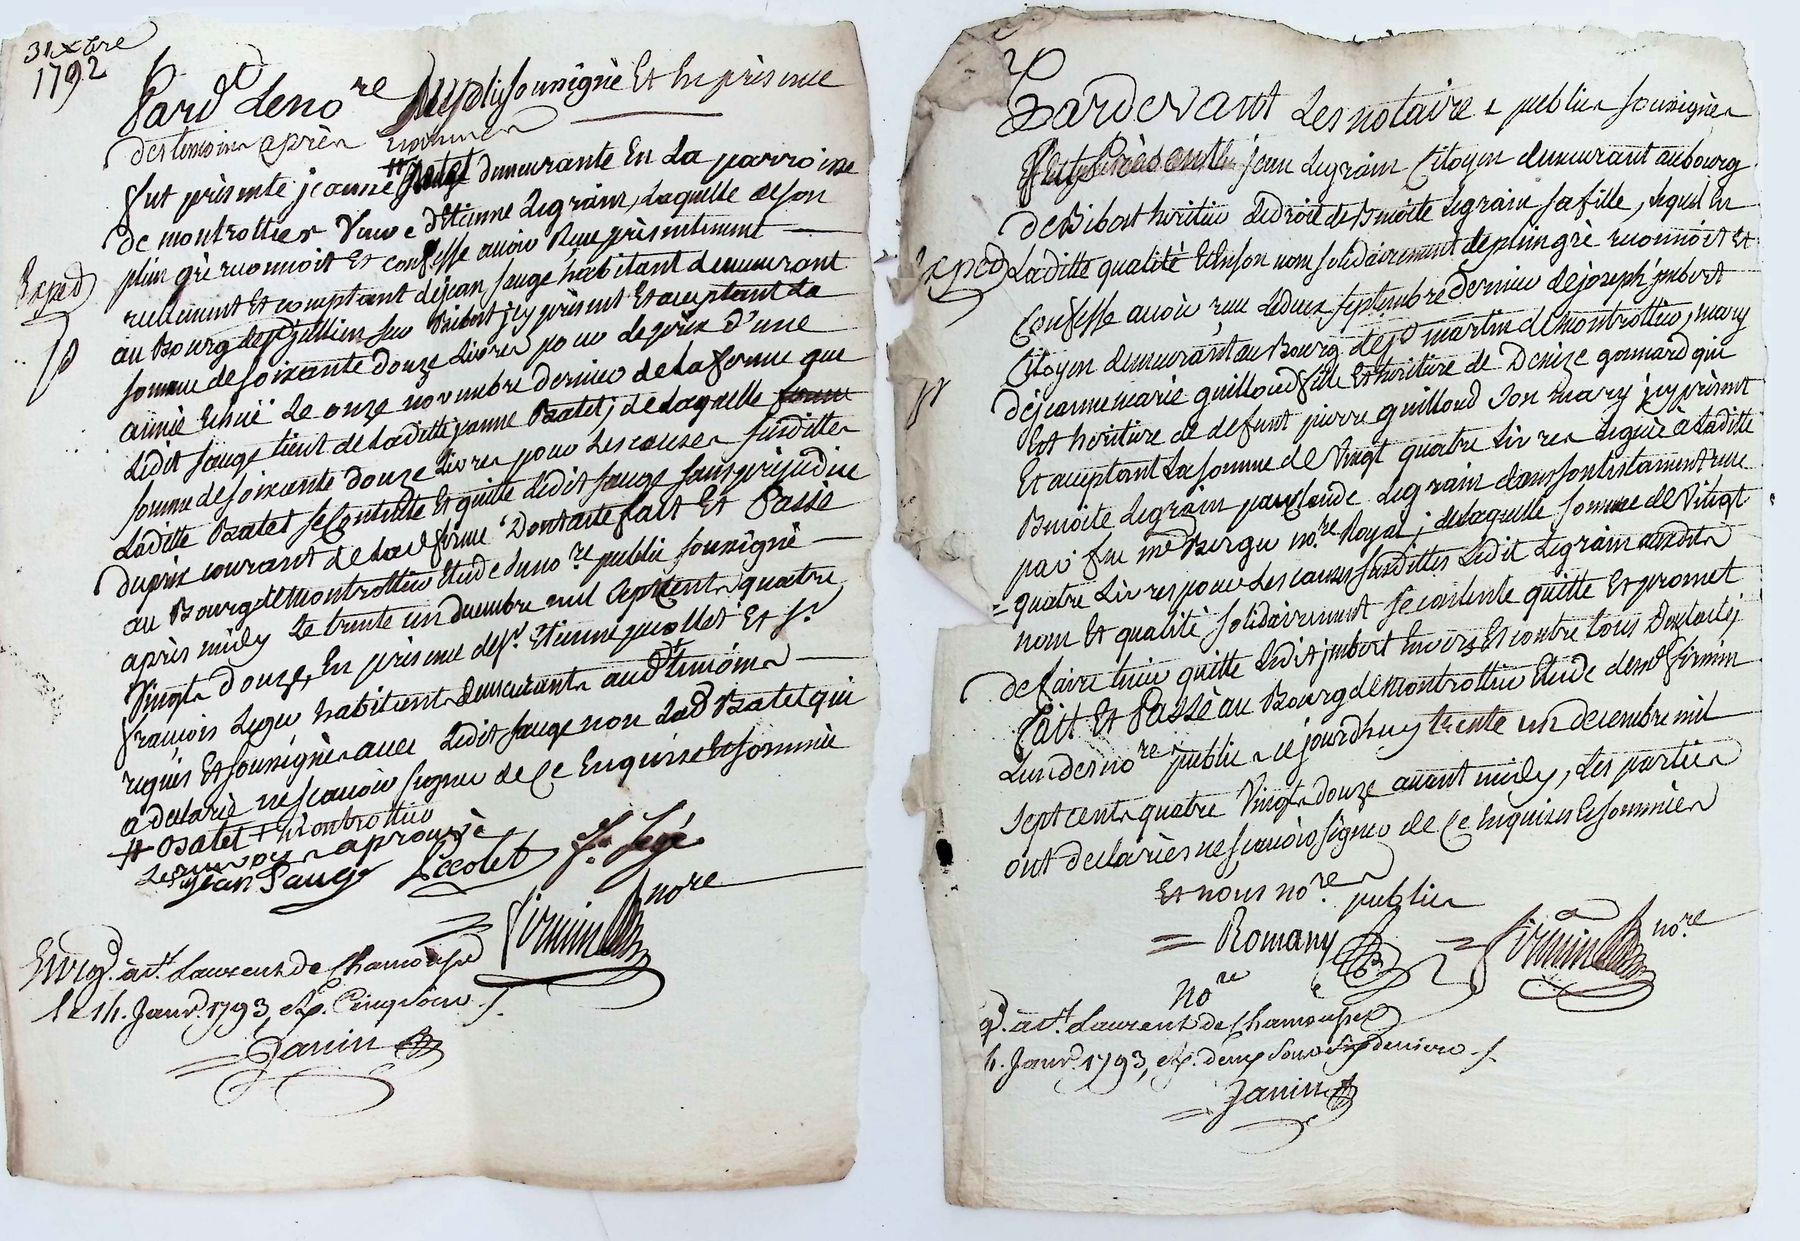 31 xbre
1792
Pard^t Le no^re public soussigné Et En présence
des temoins après nommés
fut présente jeanne # demeurante En La parroisse
de montrottier Veuve d'Etienne Legrain, Laquelle de son
plein gré reconnoit Et confesse avoir Reçu présentement
réelement Et comptant de jean sauge habitant demeurant
au Bourg de s^t jullien sur Bibost j'cy présent Et acceptant La
somme de soixante douze Livres pour le prix d'une
année Echue Le onze novembre dernier de la ferme que
Ledit sauge tient de Laditte jeanne Batet, de Laquelle somme
somme de soixante douze Livres pour Les causes susdittes
Laditte Batet se Contente Et quitte Ledit sauge sans préjudice
du prix courant de La d^e ferme Dont acte fait Et Passé
au Bourg de Montrottier Etude du no^re public soussigné
après midy Le trente un decembre mil sept cent quatre
Vingt douze, En présence de s^r. Etienne pecollet Et s^r.
françois Leger habitants demeurants aud^t temoins
requis Et soussignés avec Ledit sauge non Lad^e Batet qui
a declaré ne scavoir signer de Ce Enquise Et sommée
# Batet + Montrottier
Les renvoys approuvé
jean Sauge Pecolet f. Legé
Firmin no^re
Enreg^d. à s^t. Laurent de Chamousset
le 14. Janv^r. 1793, reç. Cinq sous
Janin
Exped
Pardevant Les notaires publics soussignés
jean Legrain Citoyen demeurant au bourg
de Bibost héritier de droit de Benoite Legrain sa fille, Lequel En
Laditte qualité Et En son nom solidairement de plein gré reconnoit Et
Confesse avoir reçu Le deux septembre dernier de joseph jmbert
Citoyen demeurant au Bourg de s^t martin de Montrottier, mary
de jeanne marie guilloud fille Et héritière de Denise gonnard qui
Est héritière de defunt pierre guilloud son mary j'cy présent
Et acceptant La somme de Vingt quatre Livres Leguée à Laditte
Benoite Legrain par Claude Legrain dans son testament reçu
par feu m^e Berger no^re. Royal; de Laquelle somme de Vingt
quatre Livres pour Les causes susdittes Ledit Legrain auxdits
nom Et qualité solidairement se contente quitte Et promet
de faire tenir quitte Ledit jmbert Envers Et contre tous Dont acte
fait Et Passé au Bourg de Montrottier Etude de m^e firmin
L'un des no^re publics ce jourdhuy trente un decembre mil
sept cent quatre Vingts douze avant midy, Les parties
ont declarées ne scavoir signer de Ce Enquises Et sommées
Et nous no^re. publics
Romany Firmin no^re
no^re
g^d. à s^t. Laurent de Chamousset
4. Janv^r. 1793, reç. deux sous six deniers
Janin
Exped